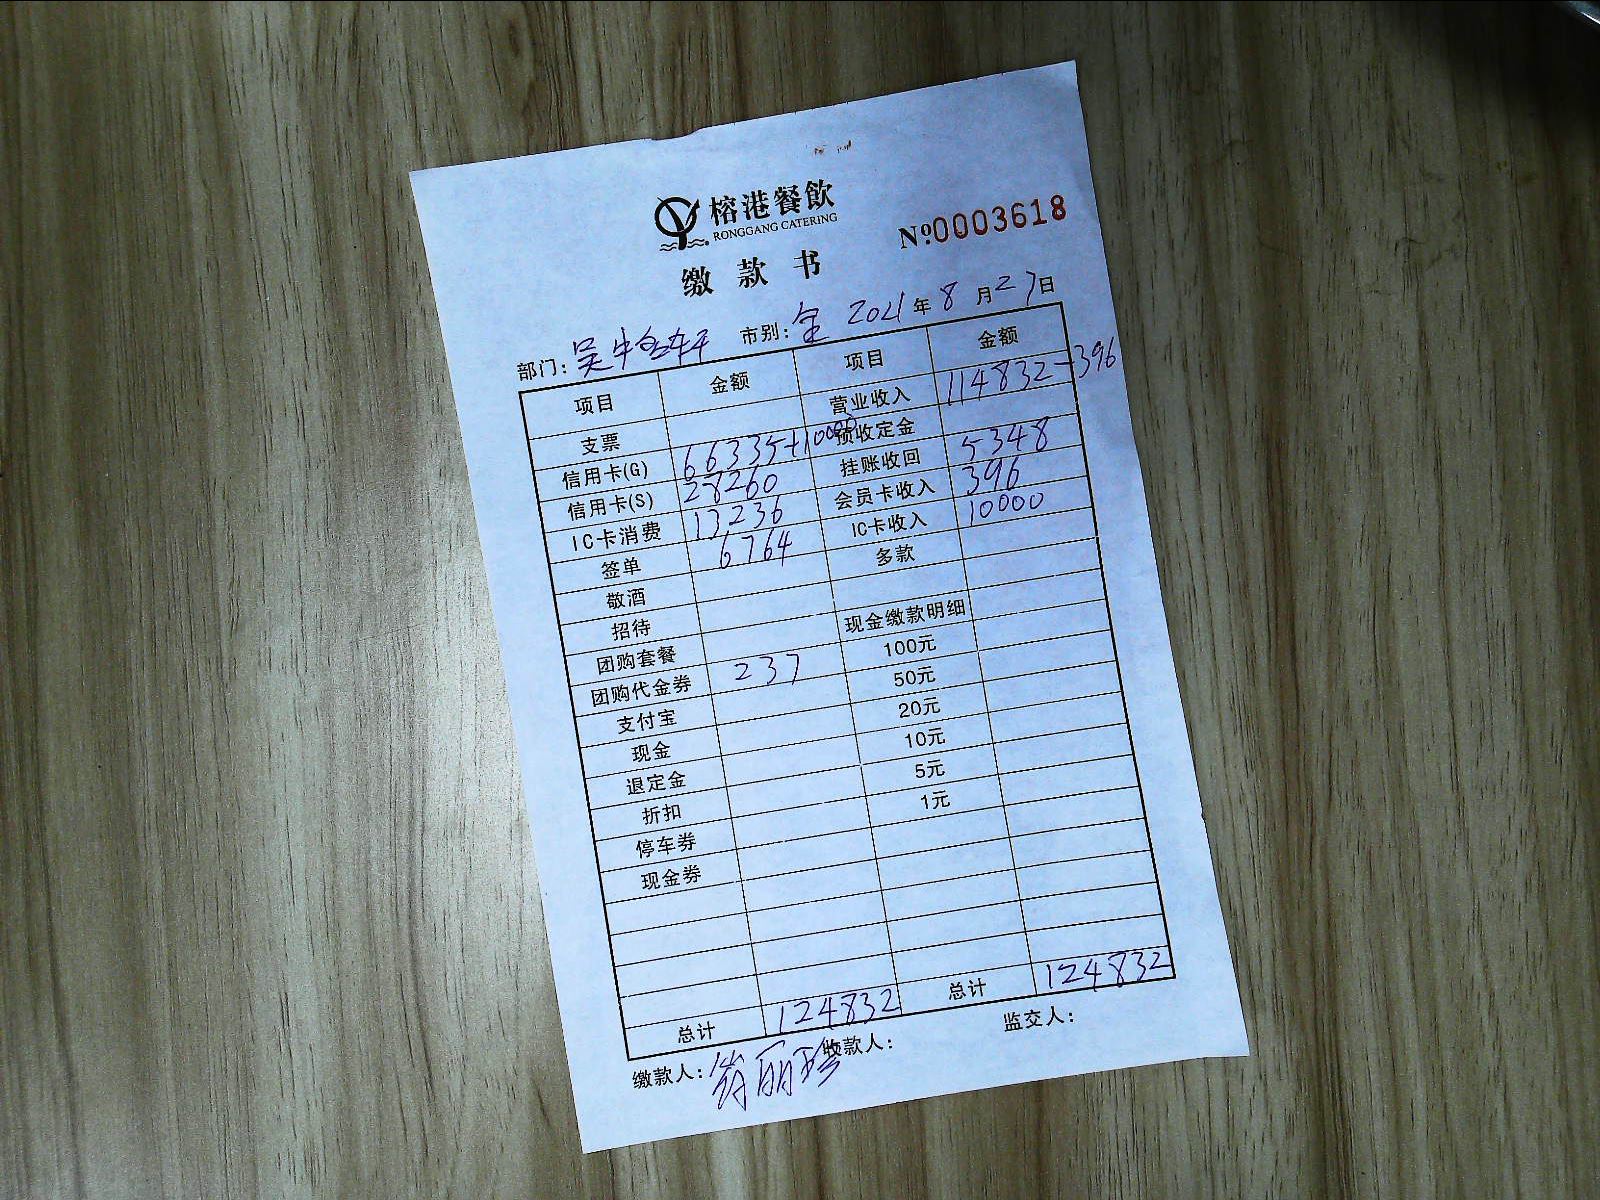 榕港餐飲
RONGGANG CATERING
缴款书
Nº:0003618
部门: 市别:全 2021年8月27日
项目 金额 项目 金额
支票 营业收入 114832-396
信用卡(G) 66335+10000 预收定金
信用卡(S) 28260 挂账收回 5348
IC卡消费 13236 会员卡收入 396
签单 6764 IC卡收入 10000
敬酒 多款
招待
团购套餐 现金缴款明细
团购代金券 237 100元
支付宝 50元
现金 20元
退定金 10元
折扣 5元
停车券 1元
现金券
总计 124832 总计 124832
缴款人:翁丽珍 收款人: 监交人: